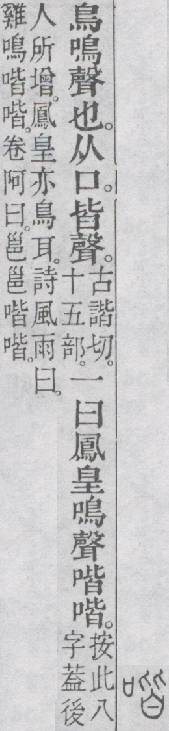 喈
鳥鳴聲也。从口。皆聲。古諧切。十五部。一曰鳳皇鳴聲喈喈。按此八字蓋後
人所增。鳳皇亦鳥耳。詩風雨曰。
雞鳴喈喈。卷阿曰。邕邕喈喈。